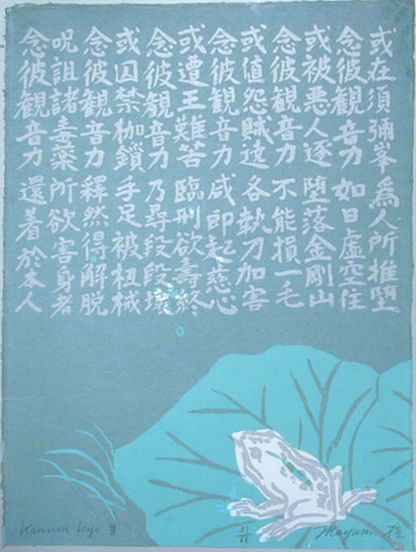 或在須彌峯為人所推墮
念彼観音力如日虚空住
或被悪人逐堕落金剛山
念彼観音力不能損一毛
或値怨賊遶各執刀加害
念彼観音力咸即起慈心
或遭王難苦臨刑欲壽終
念彼観音力乃尋段段壊
或囚禁枷鎖手足被杻械
念彼観音力釋然得解脱
呪詛諸毒藥所欲害身者
念彼観音力還着於本人
Kannon Kyo II
Mayumi